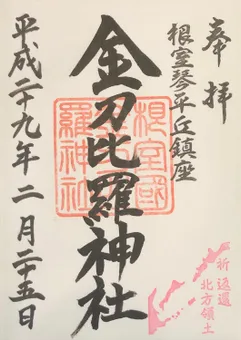 奉拝
根室琴平丘鎮座
金刀比羅神社
根室國
羅神社
平成二十九年二月二十五日
祈 返還
北方領土